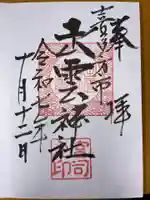 奉拝
喜多方市
出雲神社
令和七年
十月十二日